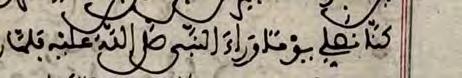 كنا نصلي يوما وراء النبي صلى الله عليه فلما